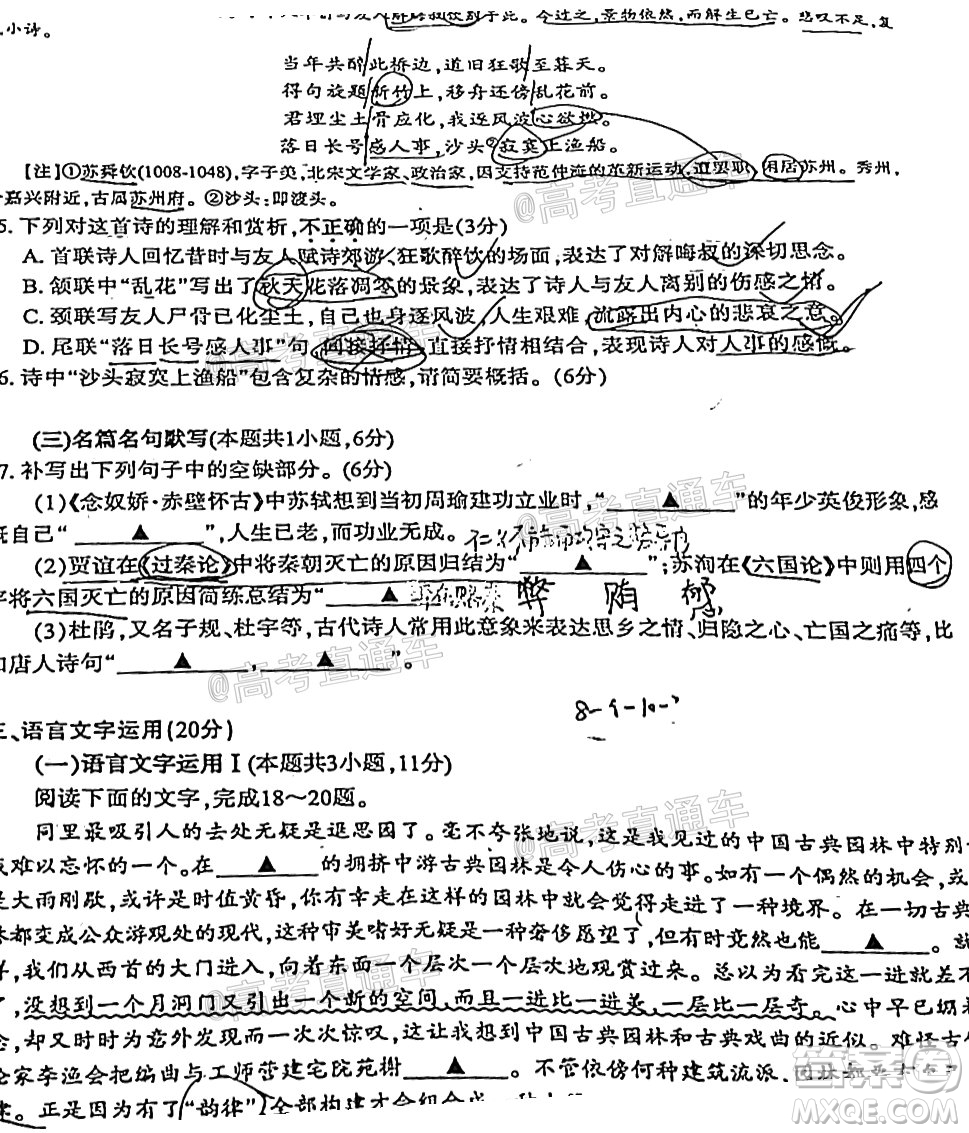 解晦叔饮别于此。今过之,景物依然,而解生已亡。悲叹不足,复
小诗。
当年共醉此桥边,道旧狂歌至暮天。
得句旋题新竹上,移舟还傍乱花前。
君埋尘土骨应化,我逐风波心欲
落日长号感人事,沙头②寂寞上渔船。
[注]①苏舜钦(1008-1048),字子美,北宋文学家、政治家,因支持范仲淹的革新运动,遭罢职,闲居苏州。秀州,
嘉兴附近,古属苏州府。②沙头:即渡头。
5. 下列对这首诗的理解和赏析,不正确的一项是(3分)
A. 首联诗人回忆昔时与友人赋诗郊游、狂歌醉饮的场面,表达了对解晦叔的深切思念。
B. 颔联中“乱花”写出了秋天花落凋零的景象,表达了诗人与友人离别的伤感之情。
C. 颈联写友人尸骨已化尘土,自己也身逐风波,人生艰难,流露出内心的悲哀之意。
D. 尾联“落日长号感人事”句,间接抒情、直接抒情相结合,表现诗人对人事的感慨。
6. 诗中“沙头寂寞上渔船”包含复杂的情感,请简要概括。(6分)
(三)名篇名句默写(本题共1小题,6分)
7. 补写出下列句子中的空缺部分。(6分)
(1)《念奴娇·赤壁怀古》中苏轼想到当初周瑜建功立业时,“▲”的年少英俊形象,感
慨自己“▲”,人生已老,而功业无成。 仁义不施而攻守之势异也
(2)贾谊在《过秦论》中将秦朝灭亡的原因归结为“▲”;苏洵在《六国论》中则用四个
字将六国灭亡的原因简练总结为“▲ 弊在赂秦 弊 赂
(3)杜鹃,又名子规、杜宇等,古代诗人常用此意象来表达思乡之情、归隐之心、亡国之痛等,比
如唐人诗句“▲,▲”。
8-9-10-
三、语言文字运用(20分)
(一)语言文字运用Ⅰ(本题共3小题,11分)
阅读下面的文字,完成18~20题。
同里最吸引人的去处无疑是退思园了。毫不夸张地说,这是我见过的中国古典园林中特别
难以忘怀的一个。在▲的拥挤中游古典园林是令人伤心的事。如有一个偶然的机会,或
是大雨刚歇,或许是时值黄昏,你有幸走在这样的园林中就会觉得走进了一种境界。在一切古典
林都变成公众游观处的现代,这种审美嗜好无疑是一种奢侈愿望了,但有时竟然也▲。就
样,我们从西首的大门进入,向着东面一个层次一个层次地观赏过来。总以为看完这一进就差不
了,没想到一个月洞门又引出一个新的空间,而且一进比一进美,一层比一层奇。心中早已绷着
念,却又时时为意外发现而一次次惊叹,这让我想到中国古典园林和古典戏曲的近似。难怪古
论家李渔会把编曲与工师营建宅院苑榭▲。不管依傍何种建筑流派,园林
韵。正是因为有了“韵律”,全部构建才会组合成
@高考直通车
@高考直通车
@高考直通车
@高考直通车
@高考直通车
答案圈
MXQE.COM